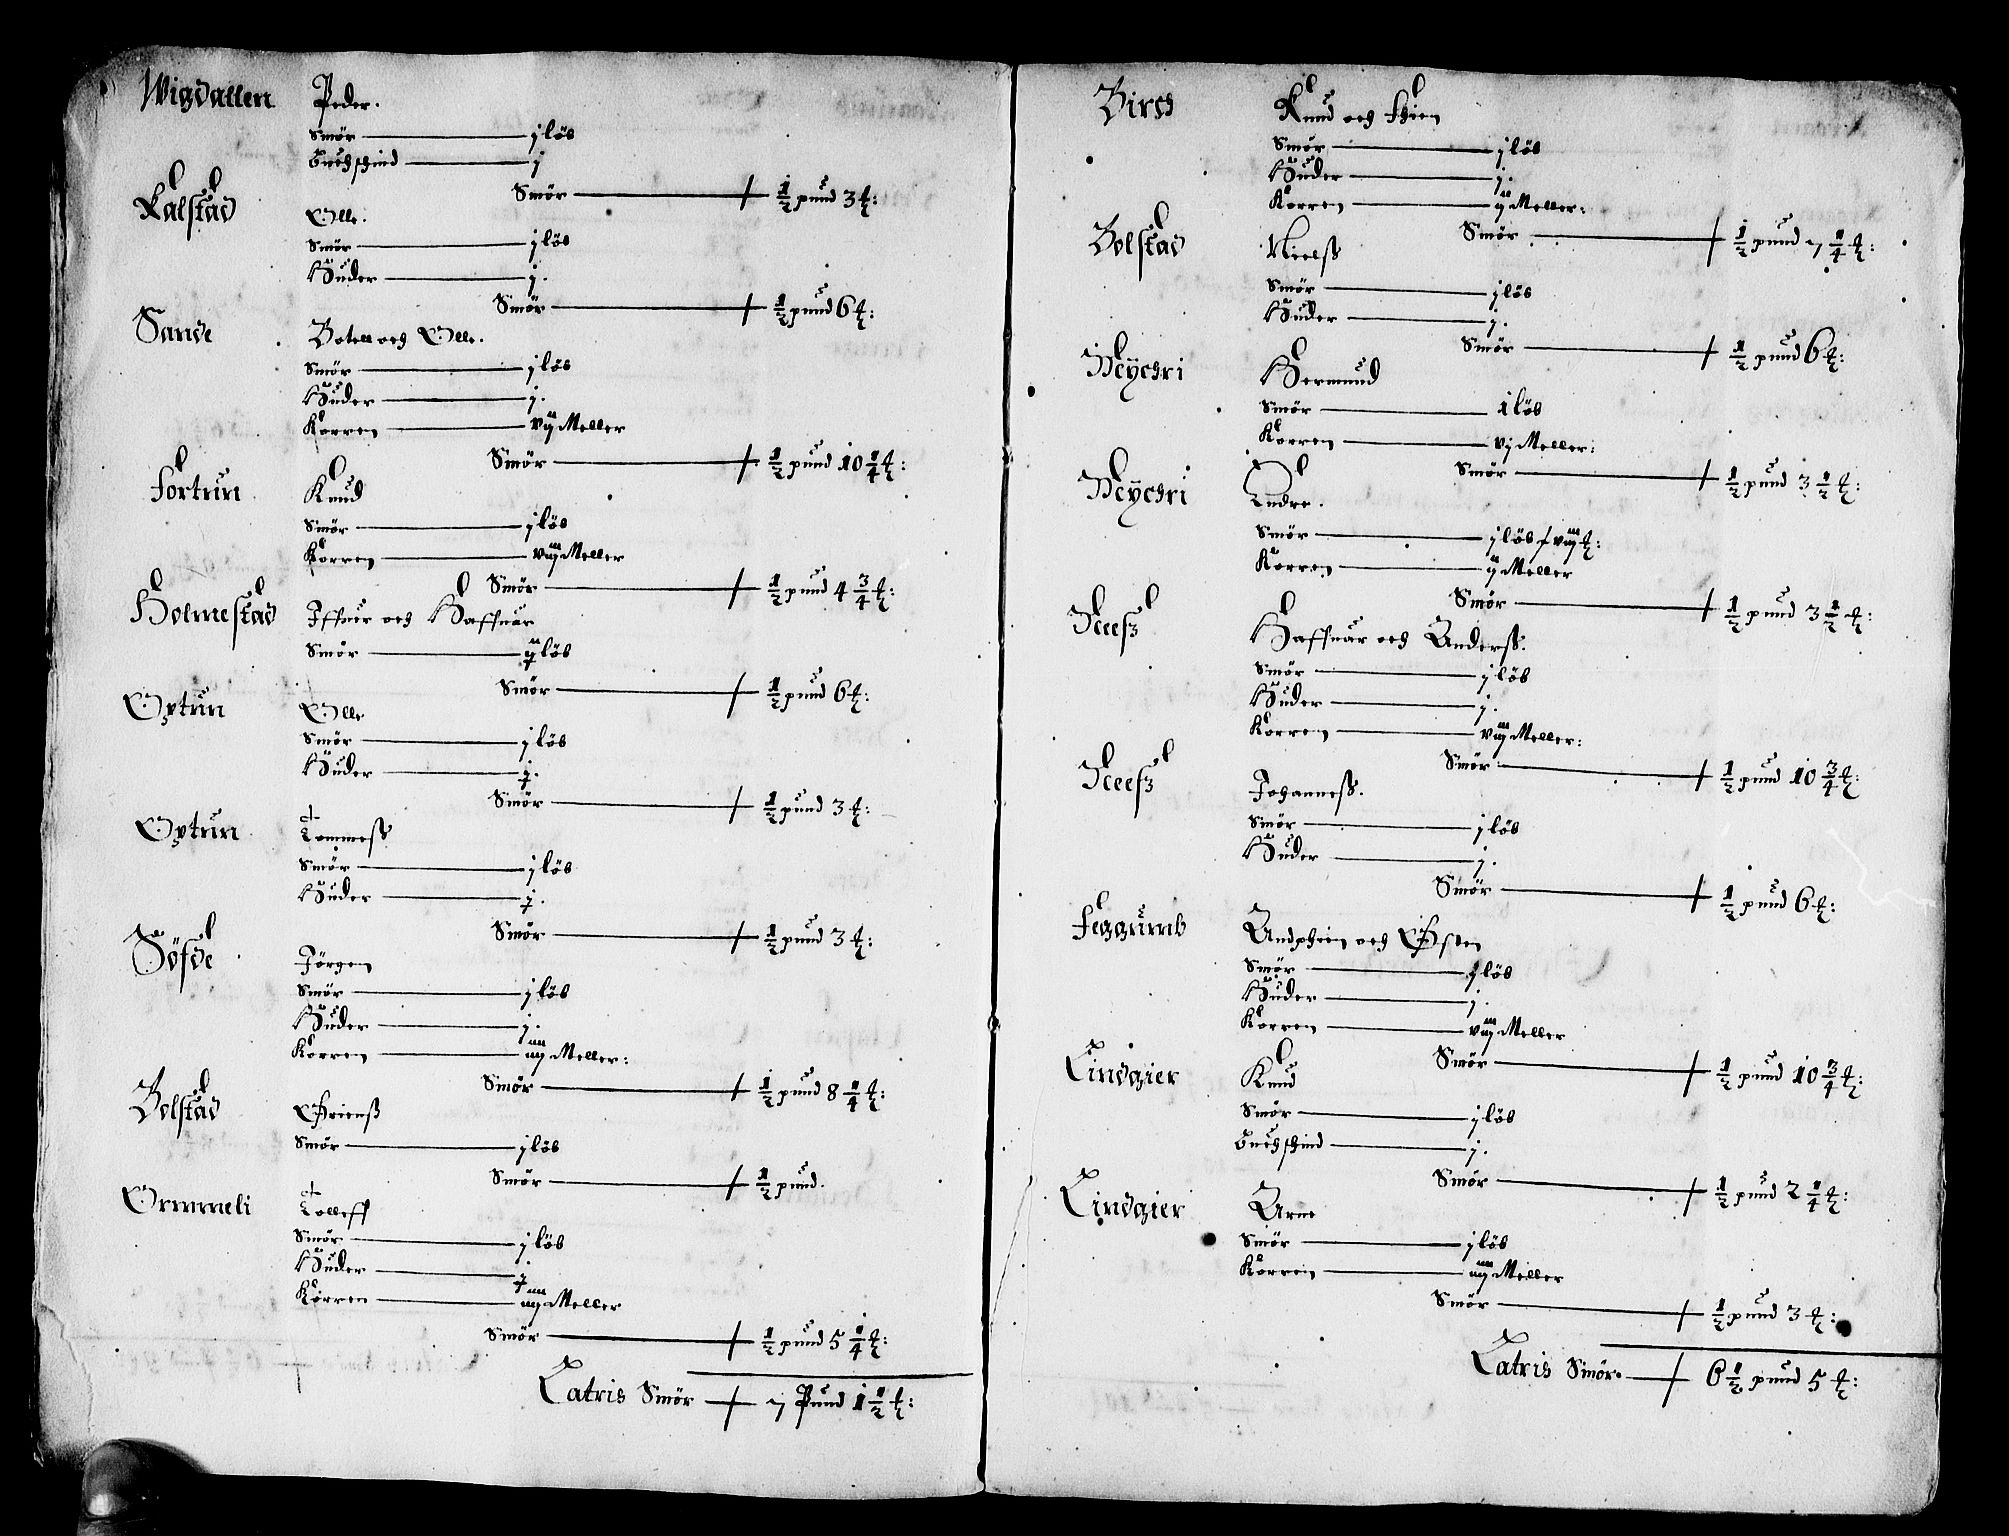 Wigdallen Peder.
Smör — j löb
Buchschind — j
Smör — ½ pund 3 ℔:
Kalstad Olle.
Smör — j löb
Huder — j.
Smör — ½ pund 6 ℔:
Sande Botell och Olle.
Smör — j löb
Huder — j.
Korren — vij Meller
Smör — ½ pund 10 ¼ ℔:
Fortun Knud
Smör — j löb
Korren — viij Meller
Smör — ½ pund 4 ¾ ℔:
Holmestad Iffuer och Haffuar
Smör — ij löb
Smör — ½ pund 6 ℔:
Optun Olle
Smör — j löb
Huder — j.
Smör — ½ pund 3 ℔:
Optun Tommess
Smör — j löb
Huder — j.
Smör — ½ pund 3 ℔:
Söfde Jörgen
Smör — j löb
Huder — j.
Korren — iiij Meller:
Smör — ½ pund 8 ¼ ℔:
Bolstad
Smör — j löb
Smör — ½ pund.
Ormmeli Tolleff
Smör — j löb
Huder — j
Korren — iiij Meller
Smör — ½ pund 5 ¼ ℔:
Latris Smör — 7 Pund 1 ½ ℔:
Birch Knud och
Smör — j löb
Huder — j.
Korren — ij Meller:
Smör — ½ pund 7 ¼ ℔:
Bolstad Nielss
Smör — j löb
Huder — j.
Smör — ½ pund 6 ℔:
Hermund
Smör — 1 löb
Korren — vj Meller:
Smör — ½ pund 3 ½ ℔:
Endre.
Smör — j löb / viij ℔:
Korren — ij Meller
Smör — ½ pund 3 ½ ℔:
Neess Haffuar och Anderss.
Smör — j löb
Huder — j.
Korren — viij Meller:
Smör — ½ pund 10 ¾ ℔:
Neess Johanness.
Smör — j löb
Huder — j.
Smör — ½ pund 6 ℔:
Feggumb och
Smör — j löb
Huder — j.
Korren — viij Meller
Smör — ½ pund 10 ¾ ℔:
Lindgier Knud
Smör — j löb
Buchschind — j.
Smör — ½ pund 2 ¼ ℔:
Lindgier Arne
Smör — j löb
Korren — iiij Meller
Smör — ½ pund 3 ℔:
Latris Smör — 6 ½ pund 5 ℔: